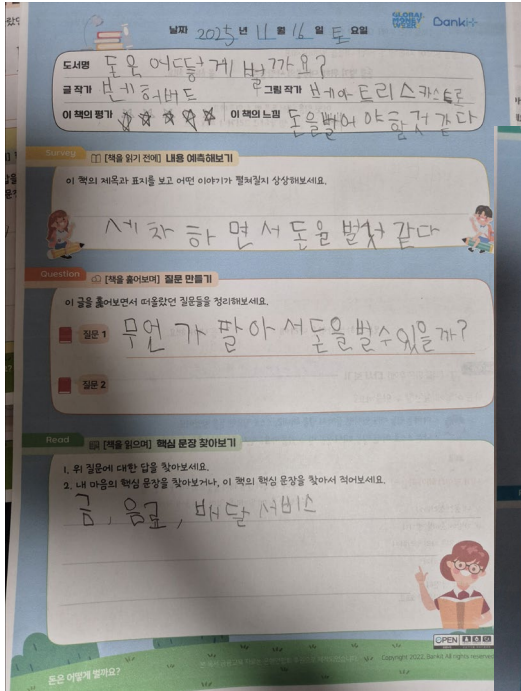 날짜 2025 년 11 월 16 일 토 요일
GLOBAL MONEY WEEK
Bankit
도서명 돈은 어떻게 벌까요?
글 작가 본네 허버드 그림 작가 브레아트리스 카스트로
이 책의 평가 ☆☆☆☆☆ 이 책의 느낌 돈을벌어야 할것 같다
Survey [책을 읽기 전에] 내용 예측해보기
이 책의 제목과 표지를 보고 어떤 이야기가 펼쳐질지 상상해보세요.
세차 하면서 돈을 벌것 같다
Question [책을 훑어보며] 질문 만들기
이 글을 훑어보면서 떠올랐던 질문들을 정리해보세요.
질문 1 무언가 팔아서돈을벌수있을까?
질문 2
Read [책을 읽으며] 핵심 문장 찾아보기
1. 위 질문에 대한 답을 찾아보세요.
2. 내 마음의 핵심 문장을 찾아보거나, 이 책의 핵심 문장을 찾아서 적어보세요.
음료, 배달 서비스
OPEN
Copyright 2022. Bankit All rights reserved.
돈은 어떻게 벌까요?